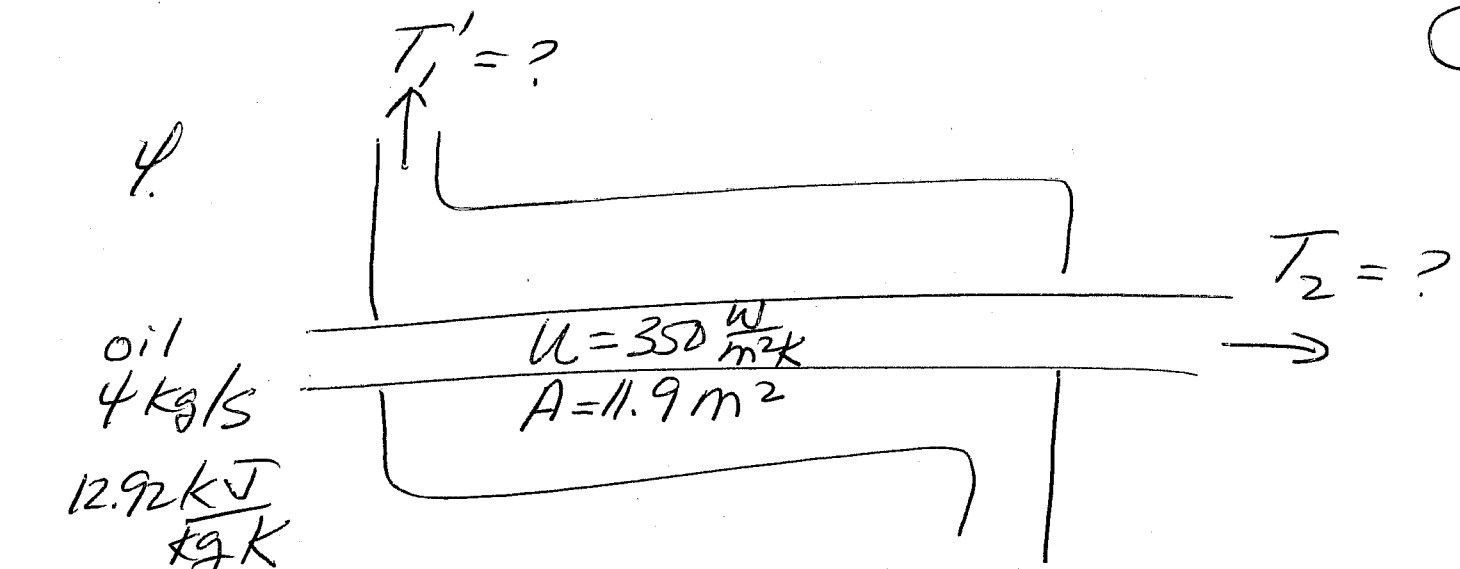 T₁' = ?
4.
T₂ = ?
oil
4 kg/s
12.92 kJ/kg K
U = 350 W/m²K
A = 11.9 m²